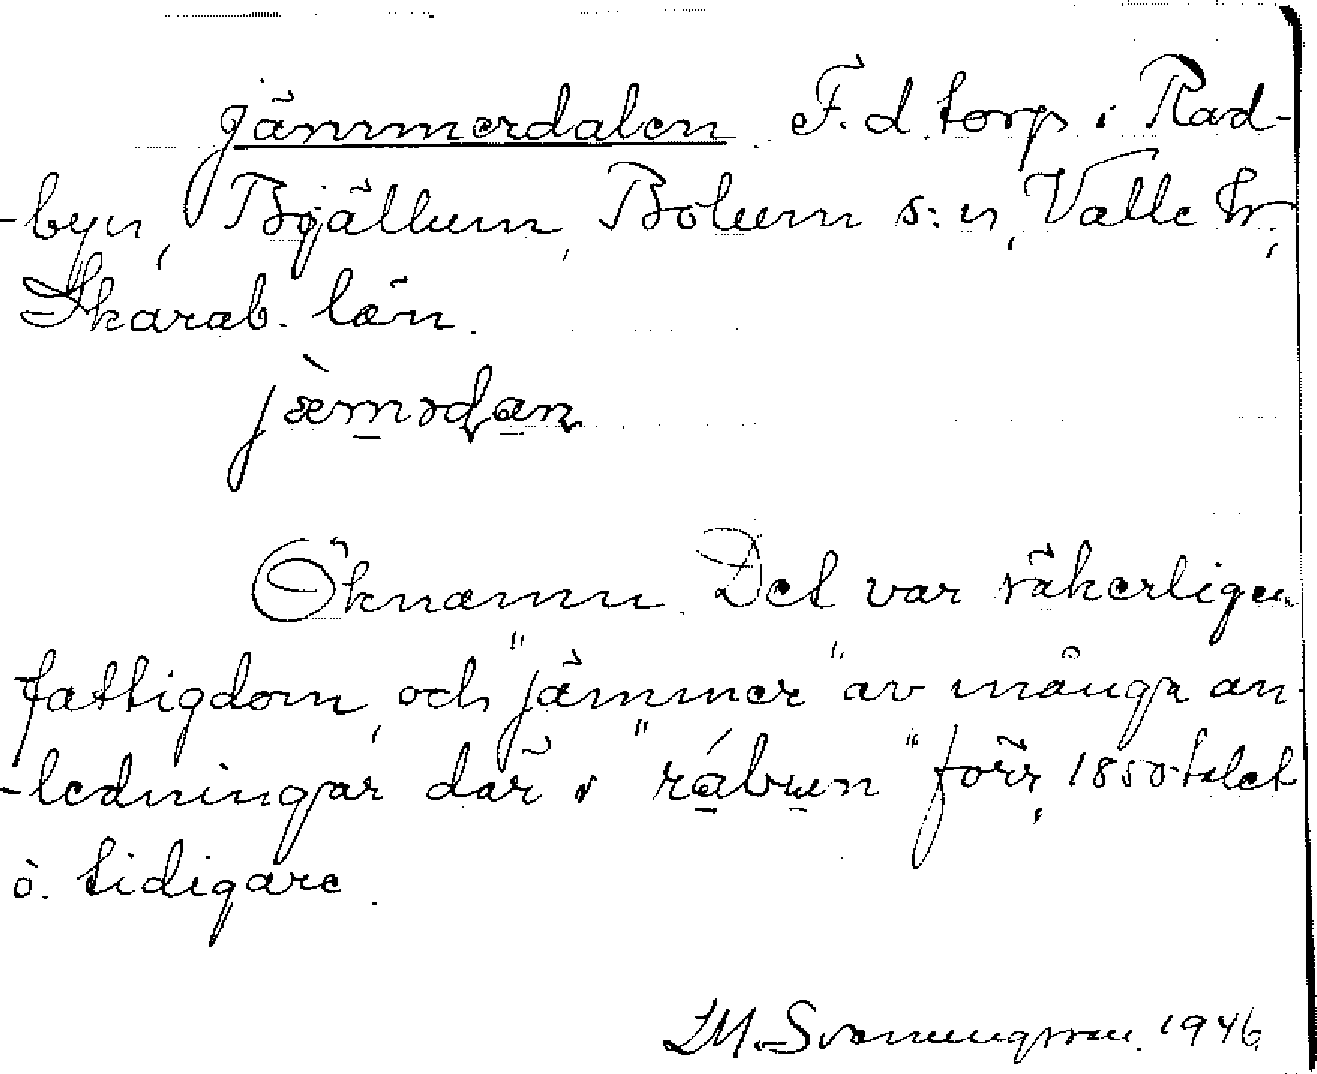 Jämmerdalen. F.d. torp i Rad-
-byn, Bjällum, Bolum s:n, Valle hr,
Skarab. län.
Öknamn. Det var säkerligen
fattigdom, och "jämmer" av många an-
-ledningar där i "råbyn" förr, 1850-talet
o. tidigare.
1946